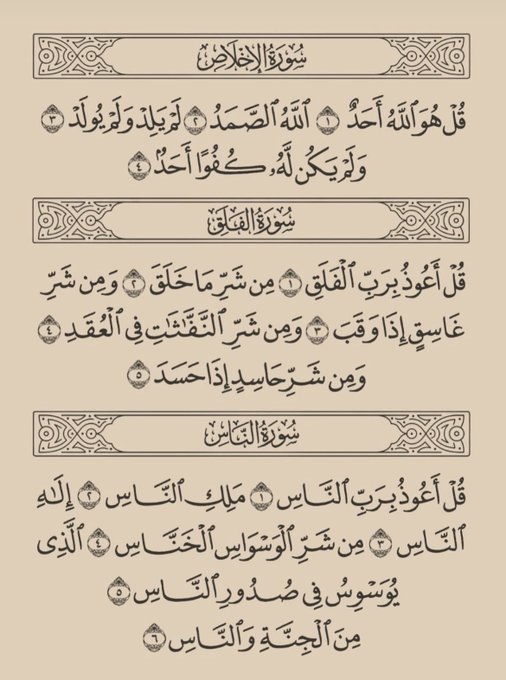 سُورَةُ الإِخْلَاصِ
قُلْ هُوَ ٱللَّهُ أَحَدٌ ١ ٱللَّهُ ٱلصَّمَدُ ٢ لَمْ يَلِدْ وَلَمْ يُولَدْ ٣
وَلَمْ يَكُن لَّهُۥ كُفُوًا أَحَدٌۢ ٤
سُورَةُ الفَلَقِ
قُلْ أَعُوذُ بِرَبِّ ٱلْفَلَقِ ١ مِن شَرِّ مَا خَلَقَ ٢ وَمِن شَرِّ
غَاسِقٍ إِذَا وَقَبَ ٣ وَمِن شَرِّ ٱلنَّفَّـٰثَـٰتِ فِى ٱلْعُقَدِ ٤
وَمِن شَرِّ حَاسِدٍ إِذَا حَسَدَ ٥
سُورَةُ النَّاسِ
قُلْ أَعُوذُ بِرَبِّ ٱلنَّاسِ ١ مَلِكِ ٱلنَّاسِ ٢ إِلَـٰهِ
ٱلنَّاسِ ٣ مِن شَرِّ ٱلْوَسْوَاسِ ٱلْخَنَّاسِ ٤ ٱلَّذِى
يُوَسْوِسُ فِى صُدُورِ ٱلنَّاسِ ٥
مِنَ ٱلْجِنَّةِ وَٱلنَّاسِ ٦